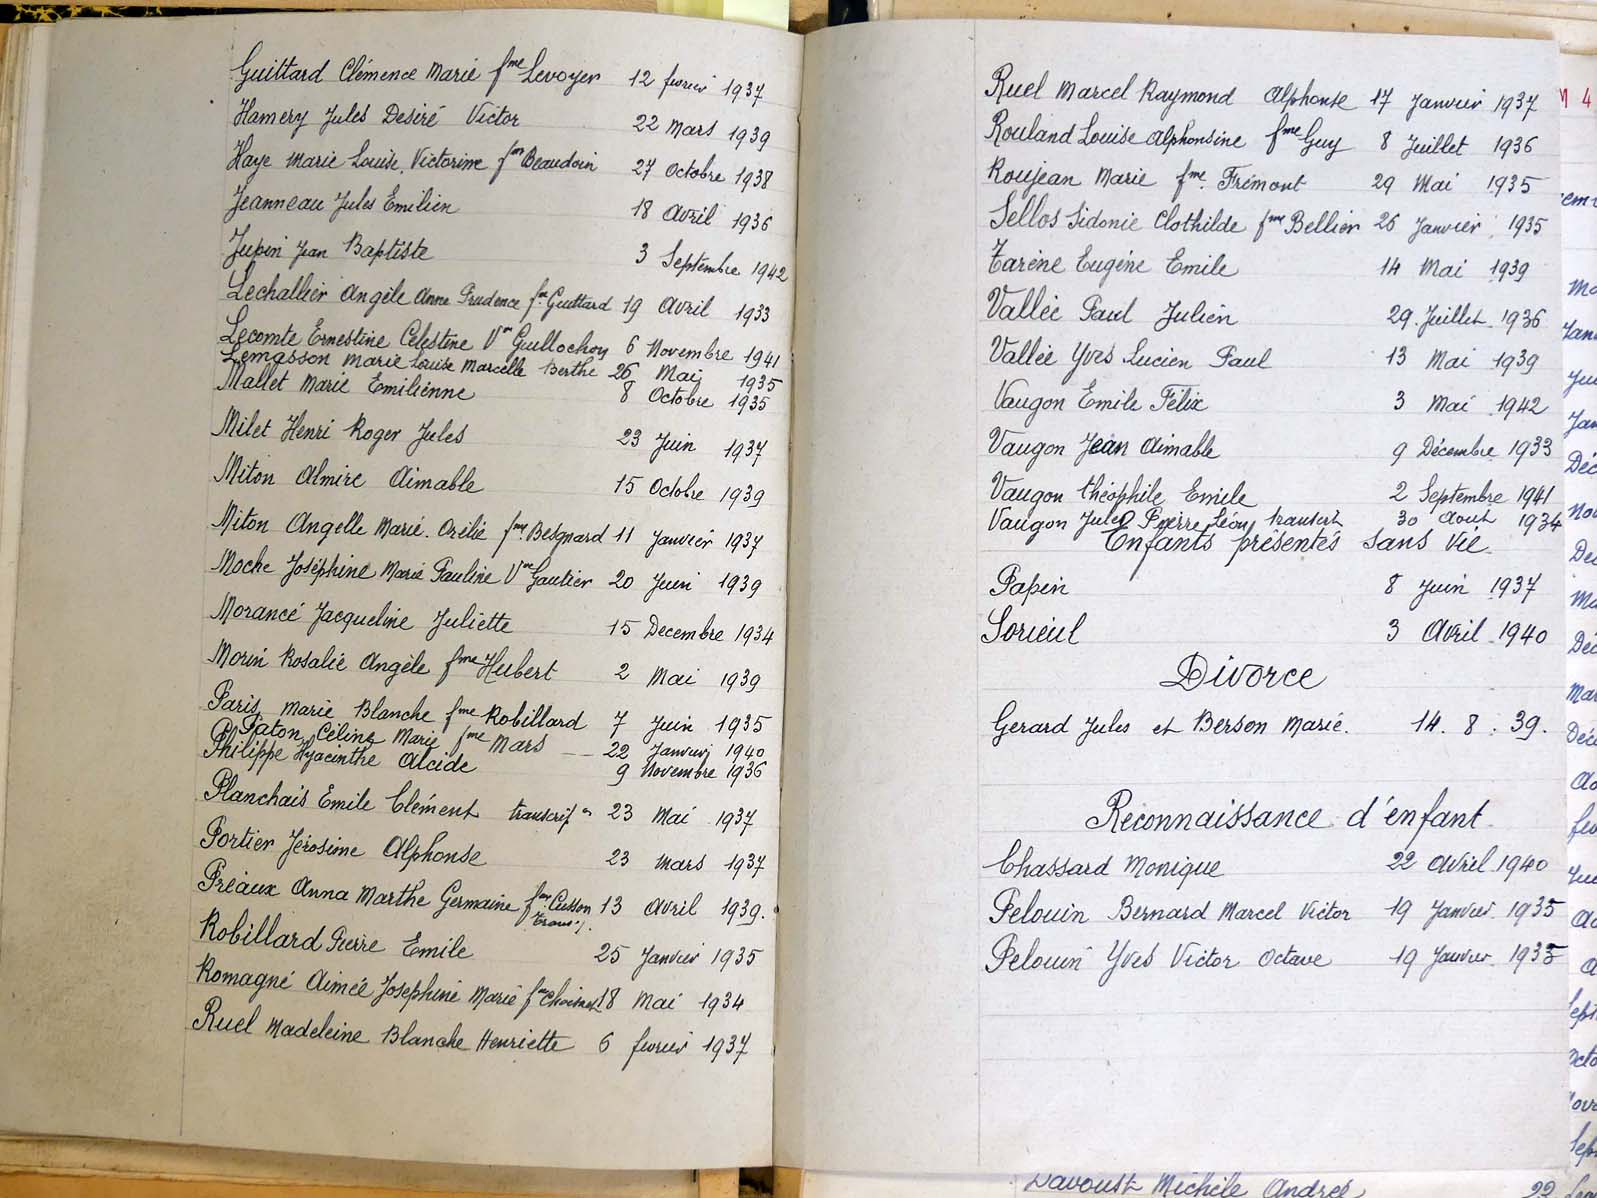 Guittard Clémence Marie fme Levoyer 12 fevrier 1937
Hamery Jules Desiré Victor 22 Mars 1939
Haye Marie Louise Victorine fme Beaudoin 27 Octobre 1938
Jeanneau Jules Emilien 18 Avril 1936
Jupin Jean Baptiste 3 Septembre 1942
Lechallier Angèle Anne Prudence fe Guittard 19 Avril 1933
Lecomte Ernestine Celestine Vve Guillochon 6 Novembre 1941
Lemasson Marie Louise Marcelle Berthe 26 Mai 1935
Mallet Marie Emilienne 8 Octobre 1935
Milet Henri Roger Jules 23 Juin 1937
Miton Almire Aimable 15 Octobre 1939
Miton Angelle Marie Orélie fme Besgnard 11 Janvier 1937
Moche Joséphine Marie Pauline Vve Gautier 20 Juin 1939
Morancé Jacqueline Juliette 15 Decembre 1934
Morin Rosalie Angèle fme Hubert 2 Mai 1939
Paris Marie Blanche fme Robillard 7 Juin 1935
Paton Céline Marie fme Mars — 22 Janvier 1940
Philippe Hyacinthe Alcide 9 Novembre 1936
Planchais Emile Clément transcript on 23 Mai 1937
Portier Jérosime Alphonse 23 Mars 1937
Préaux Anna Marthe Germaine fme Cusson 13 Avril 1939.
Robillard Pierre Emile 25 Janvier 1935
Romagné Aimée Josephine Marie fme 18 Mai 1934
Ruel Madeleine Blanche Henriette 6 fevrier 1937
Ruel Marcel Raymond Alphonse 17 Janvier 1937
Rouland Louise Alphonsine fme Guy 8 Juillet 1936
Roujean Marie fme Frémont 29 Mai 1935
Sellos Sidonie Clothilde fme Bellier 26 Janvier 1935
Tarène Eugène Emile 14 Mai 1939
Vallée Paul Julien 29 Juillet 1936
Vallée Yves Lucien Paul 13 Mai 1939
Vaugon Emile Félix 3 Mai 1942
Vaugon Jean Aimable 9 Décembre 1933
Vaugon Théophile Emile 2 Septembre 1941
Vaugon Jules Pierre Léon transcrt 30 Aout 1934
Enfants présentés sans vie
Papin 8 Juin 1937
Sorieul 3 Avril 1940
Divorce
Gerard Jules et Berson Marie. 14. 8. 39.
Reconnaissance d'enfant
Chassard Monique 22 Avril 1940
Pelouin Bernard Marcel Victor 19 Janvier 1935
Pelouin Yves Victor Octave 19 Janvier 1935
Davoust Michèle Andrée 22